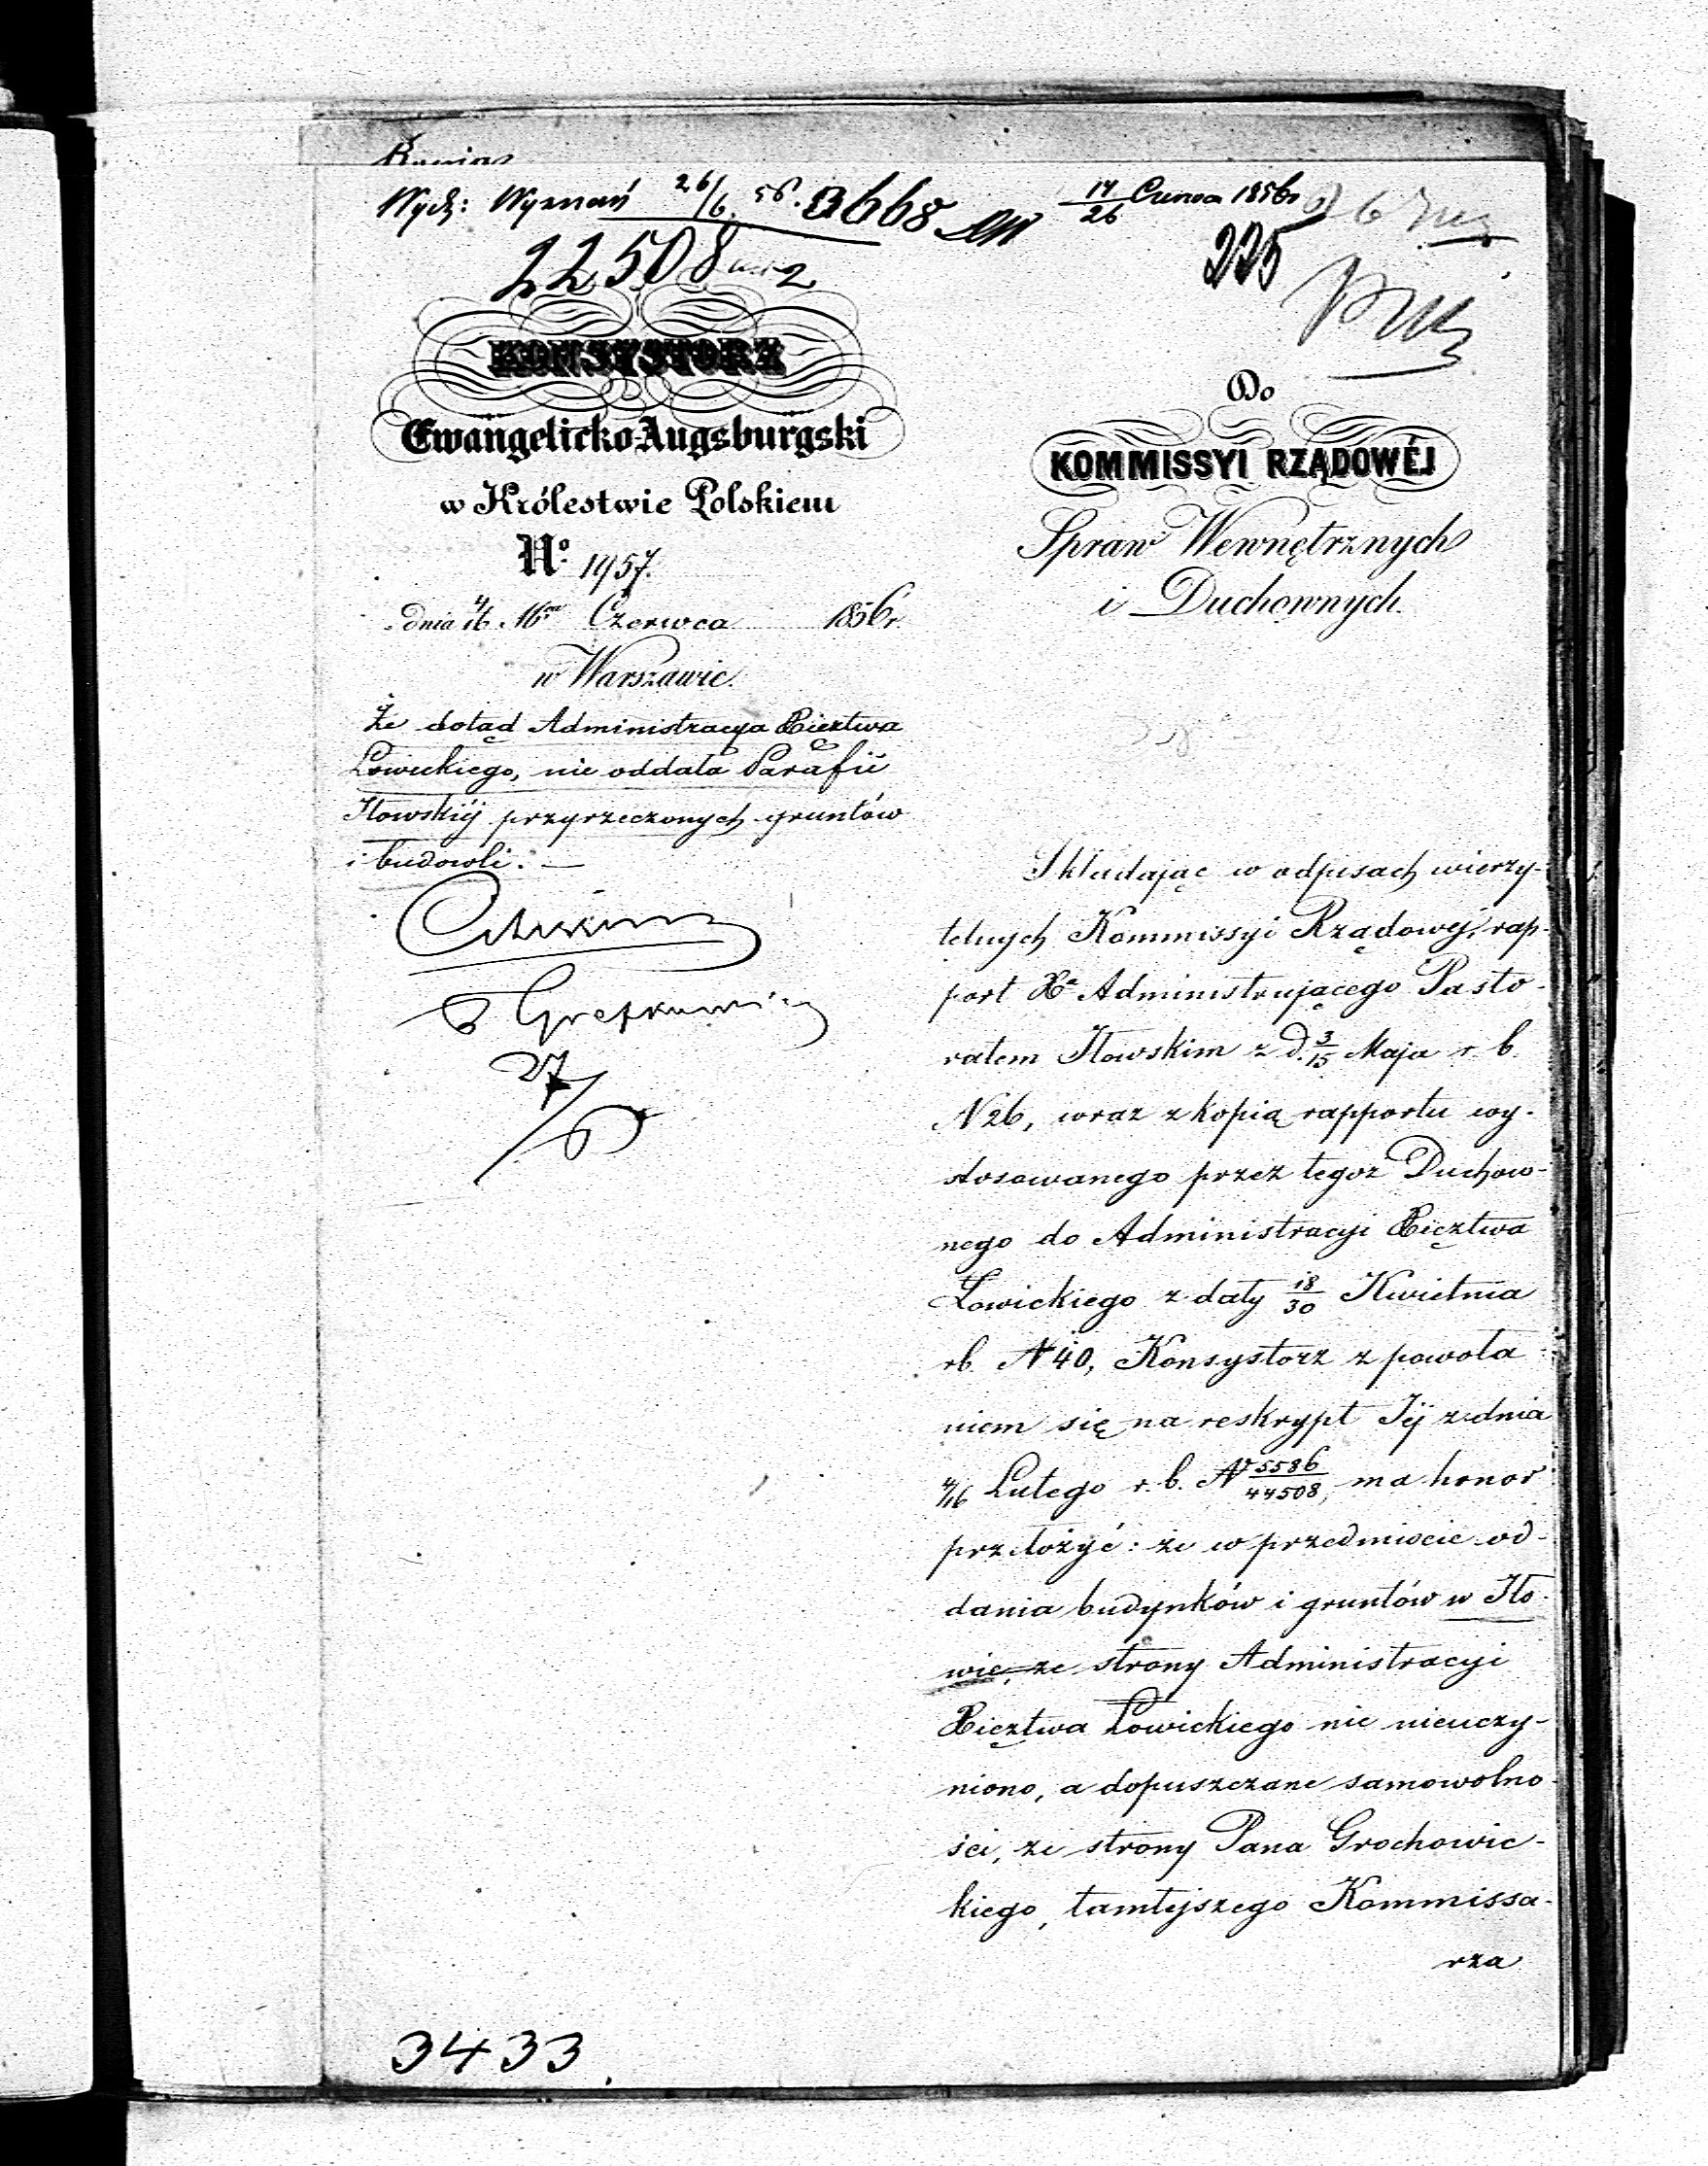 Wydz: Wyznań 26/6. 56. 3668
14/26 Czerwca 1856
22508
225
KONSYSTORZ
Ewangelicko-Augsburgski
w Królestwie Polskiem
No. 1957.
dnia 4/16 Czerwca 1856 r.
w Warszawie.
Że dotąd Administracya Xięztwa
Łowickiego, nie oddała Parafii
Iłowskiéj przyrzeczonych gruntów
i budowli. —
27/6
Do
KOMMISSYI RZĄDOWÉJ
Spraw Wewnętrznych
i Duchownych.
Składając w odpisach wierzy-
telnych Kommissyi Rządowej, rap-
port Xa Administrującego Pasto-
ratem Iłowskim z d. 3/15 Maja r. b.
N 26, wraz z kopią rapportu wy-
stosowanego przez tegoż Duchow-
nego do Administracyi Xięztwa
Łowickiego z daty 18/30 Kwietnia
rb. N 40, Konsystorz z powoła-
niem się na reskrypt Jéj z dnia
4/16 Lutego r. b. N 5586/44508, ma honor
przełożyć: że w przedmiocie od-
dania budynków i gruntów w Iło-
wie, ze strony Administracyi
Xięztwa Łowickiego nic nieuczy-
niono, a dopuszczane samowolno-
ści, ze strony Pana Grochowic-
kiego, tamtejszego Kommissa-
rza
3433